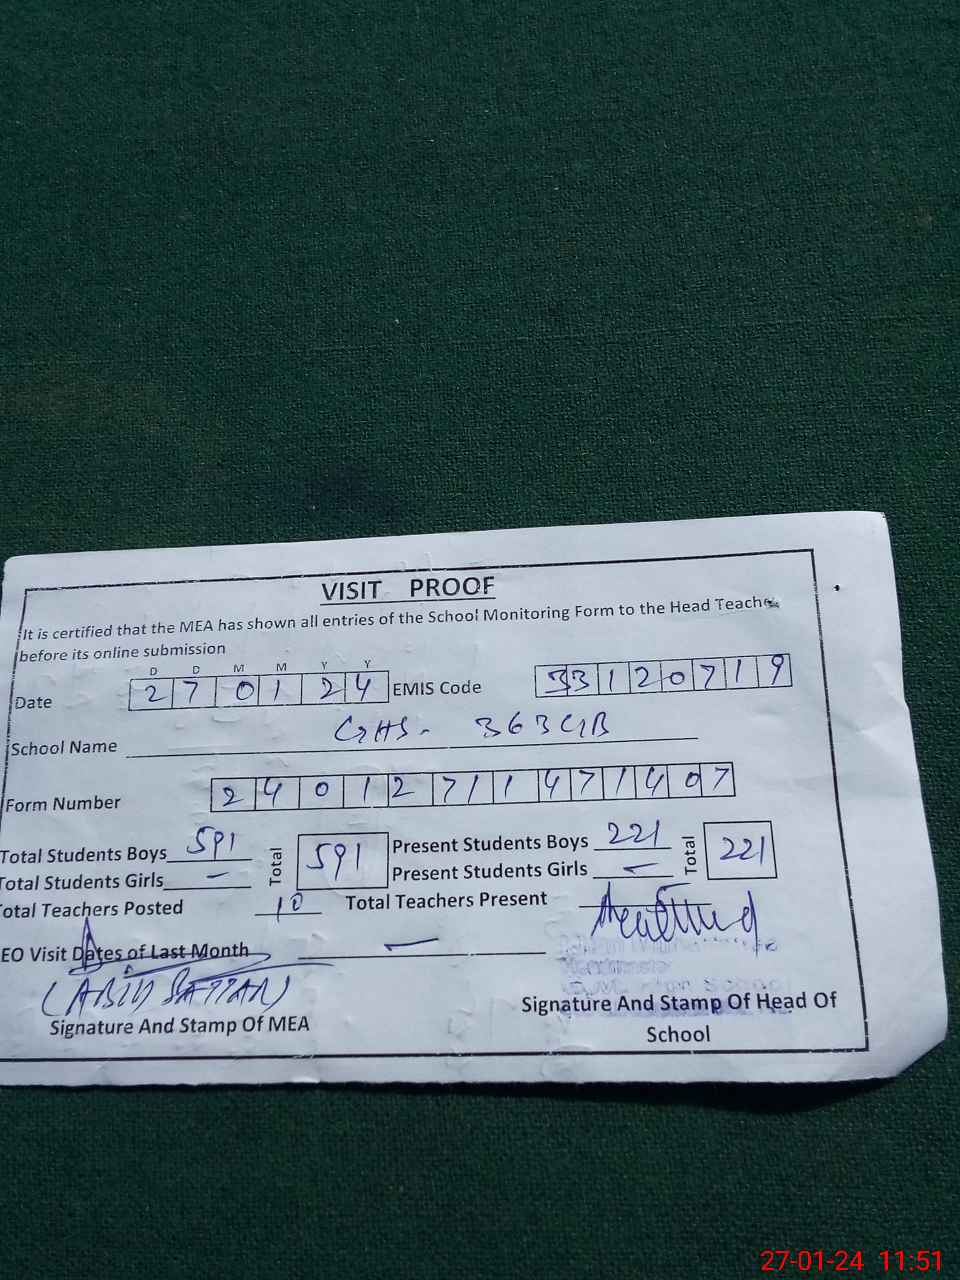 VISIT PROOF
It is certified that the MEA has shown all entries of the School Monitoring Form to the Head Teache
before its online submission
D D M M Y Y
Date 2 7 0 1 2 4 EMIS Code 3 3 1 2 0 7 1 9
School Name GHS- 363 GB
Form Number 2 4 0 1 2 7 1 1 4 7 1 4 0 7
Total Students Boys 591 Total 591 Present Students Boys 221 Total 221
Total Students Girls - Present Students Girls -
Total Teachers Posted 10 Total Teachers Present
EO Visit Dates of Last Month -
(ABID SATTAR)
Signature And Stamp Of MEA
Signature And Stamp Of Head Of
School
27-01-24 11:51